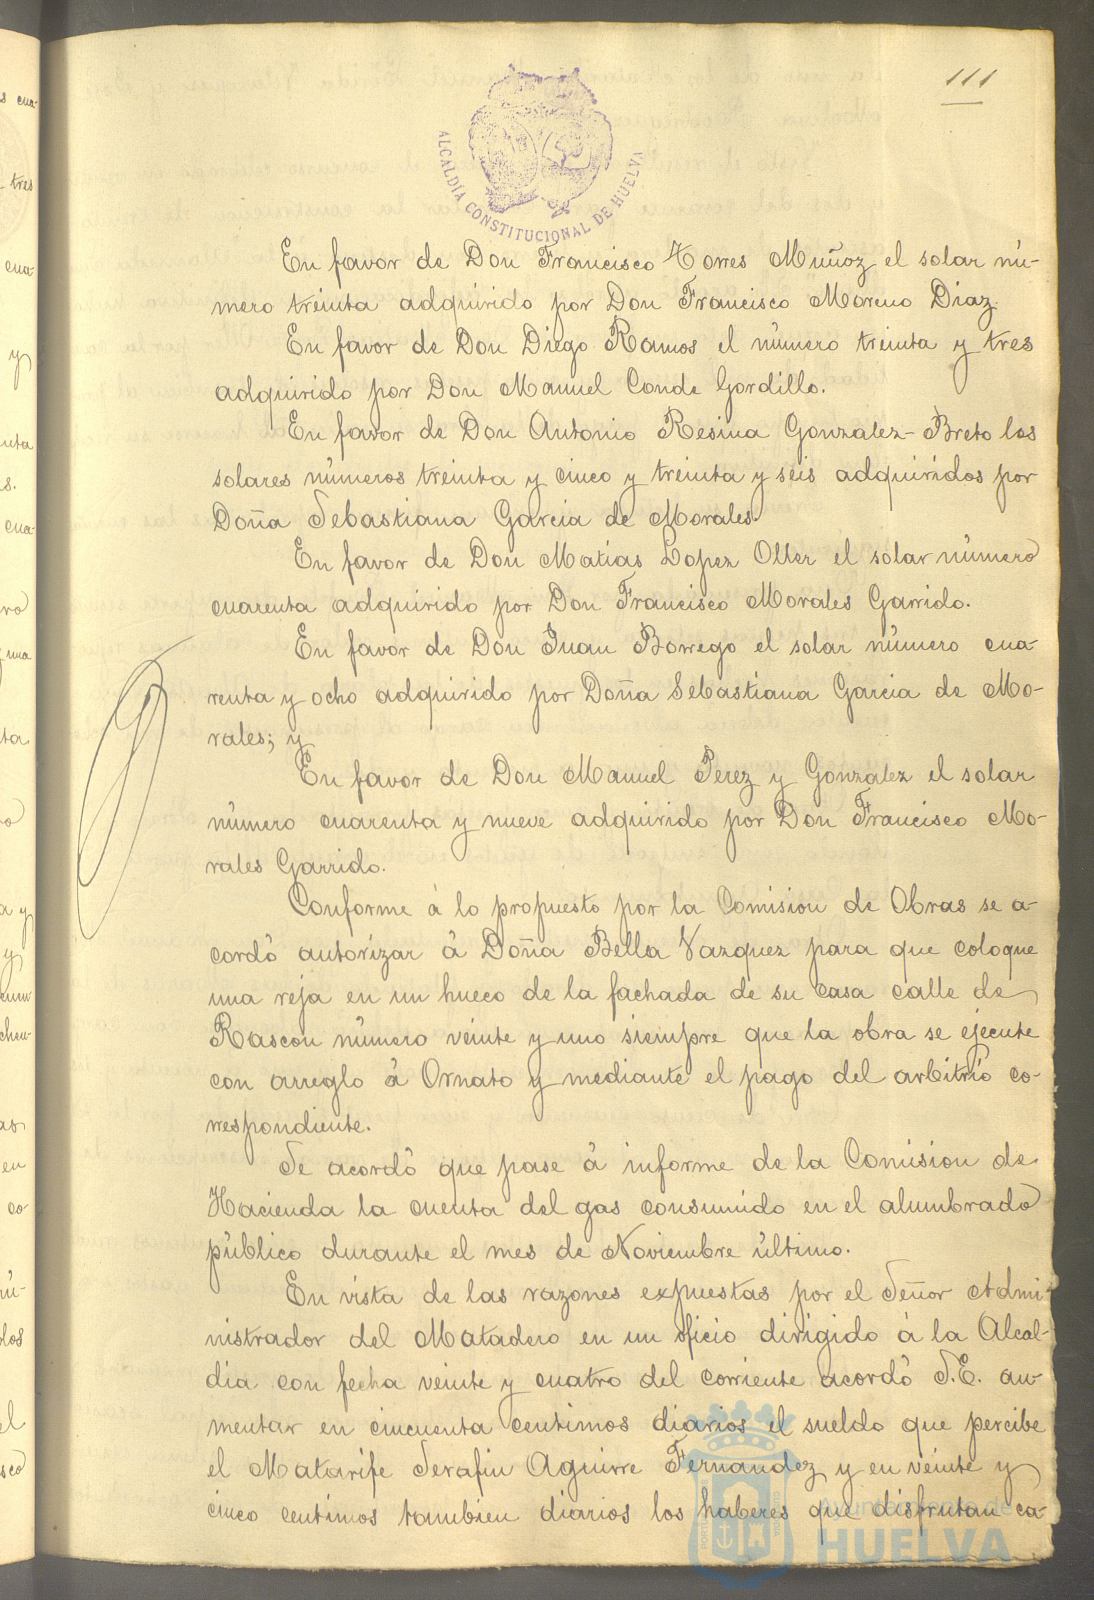 111
ALCALDÍA CONSTITUCIONAL DE HUELVA
En favor de Don Francisco Torres Muñoz el solar nú-
mero treinta adquirido por Don Francisco Moreno Diaz.
En favor de Don Diego Ramos el número treinta y tres
adquirido por Don Manuel Conde Gordillo.
En favor de Don Antonio Resina Gonzalez-Breto los
solares números treinta y cinco y treinta y seis adquiridos por
Doña Sebastiana Garcia de Morales.
En favor de Don Matías Lopez Oller el solar número
cuarenta adquirido por Don Francisco Morales Garrido.
En favor de Don Juan Borrego el solar número cua-
renta y ocho adquirido por Doña Sebastiana Garcia de Mo-
rales; y
En favor de Don Manuel Perez y Gonzalez el solar
número cuarenta y nueve adquirido por Don Francisco Mo-
rales Garrido.
Conforme á lo propuesto por la Comision de Obras se a-
cordó autorizar á Doña Bella Vazquez para que coloque
una reja en un hueco de la fachada de su casa calle de
Rascon número veinte y uno siempre que la obra se ejecute
con arreglo á Ornato y mediante el pago del arbitrio co-
rrespondiente.
Se acordó que pase á informe de la Comision de
Hacienda la cuenta del gas consumido en el alumbrado
público durante el mes de Noviembre último.
En vista de las razones expuestas por el Señor Admi-
nistrador del Matadero en un oficio dirigido á la Alcal-
dia con fecha veinte y cuatro del corriente acordó S.E. au-
mentar en cincuenta centimos diarios el sueldo que percibe
el Matarife Serafin Aguirre Fernandez y en veinte y
cinco centimos tambien diarios los haberes que disfrutan ca-
Ayuntamiento de
HUELVA